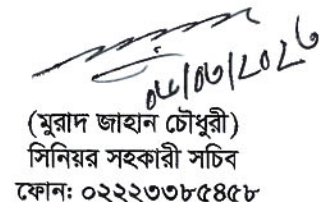 ০৮/০৩/২০২৬
(মুরাদ জাহান চৌধুরী)
সিনিয়র সহকারী সচিব
ফোন: ০২২২৩৩৮৫৪৫৮